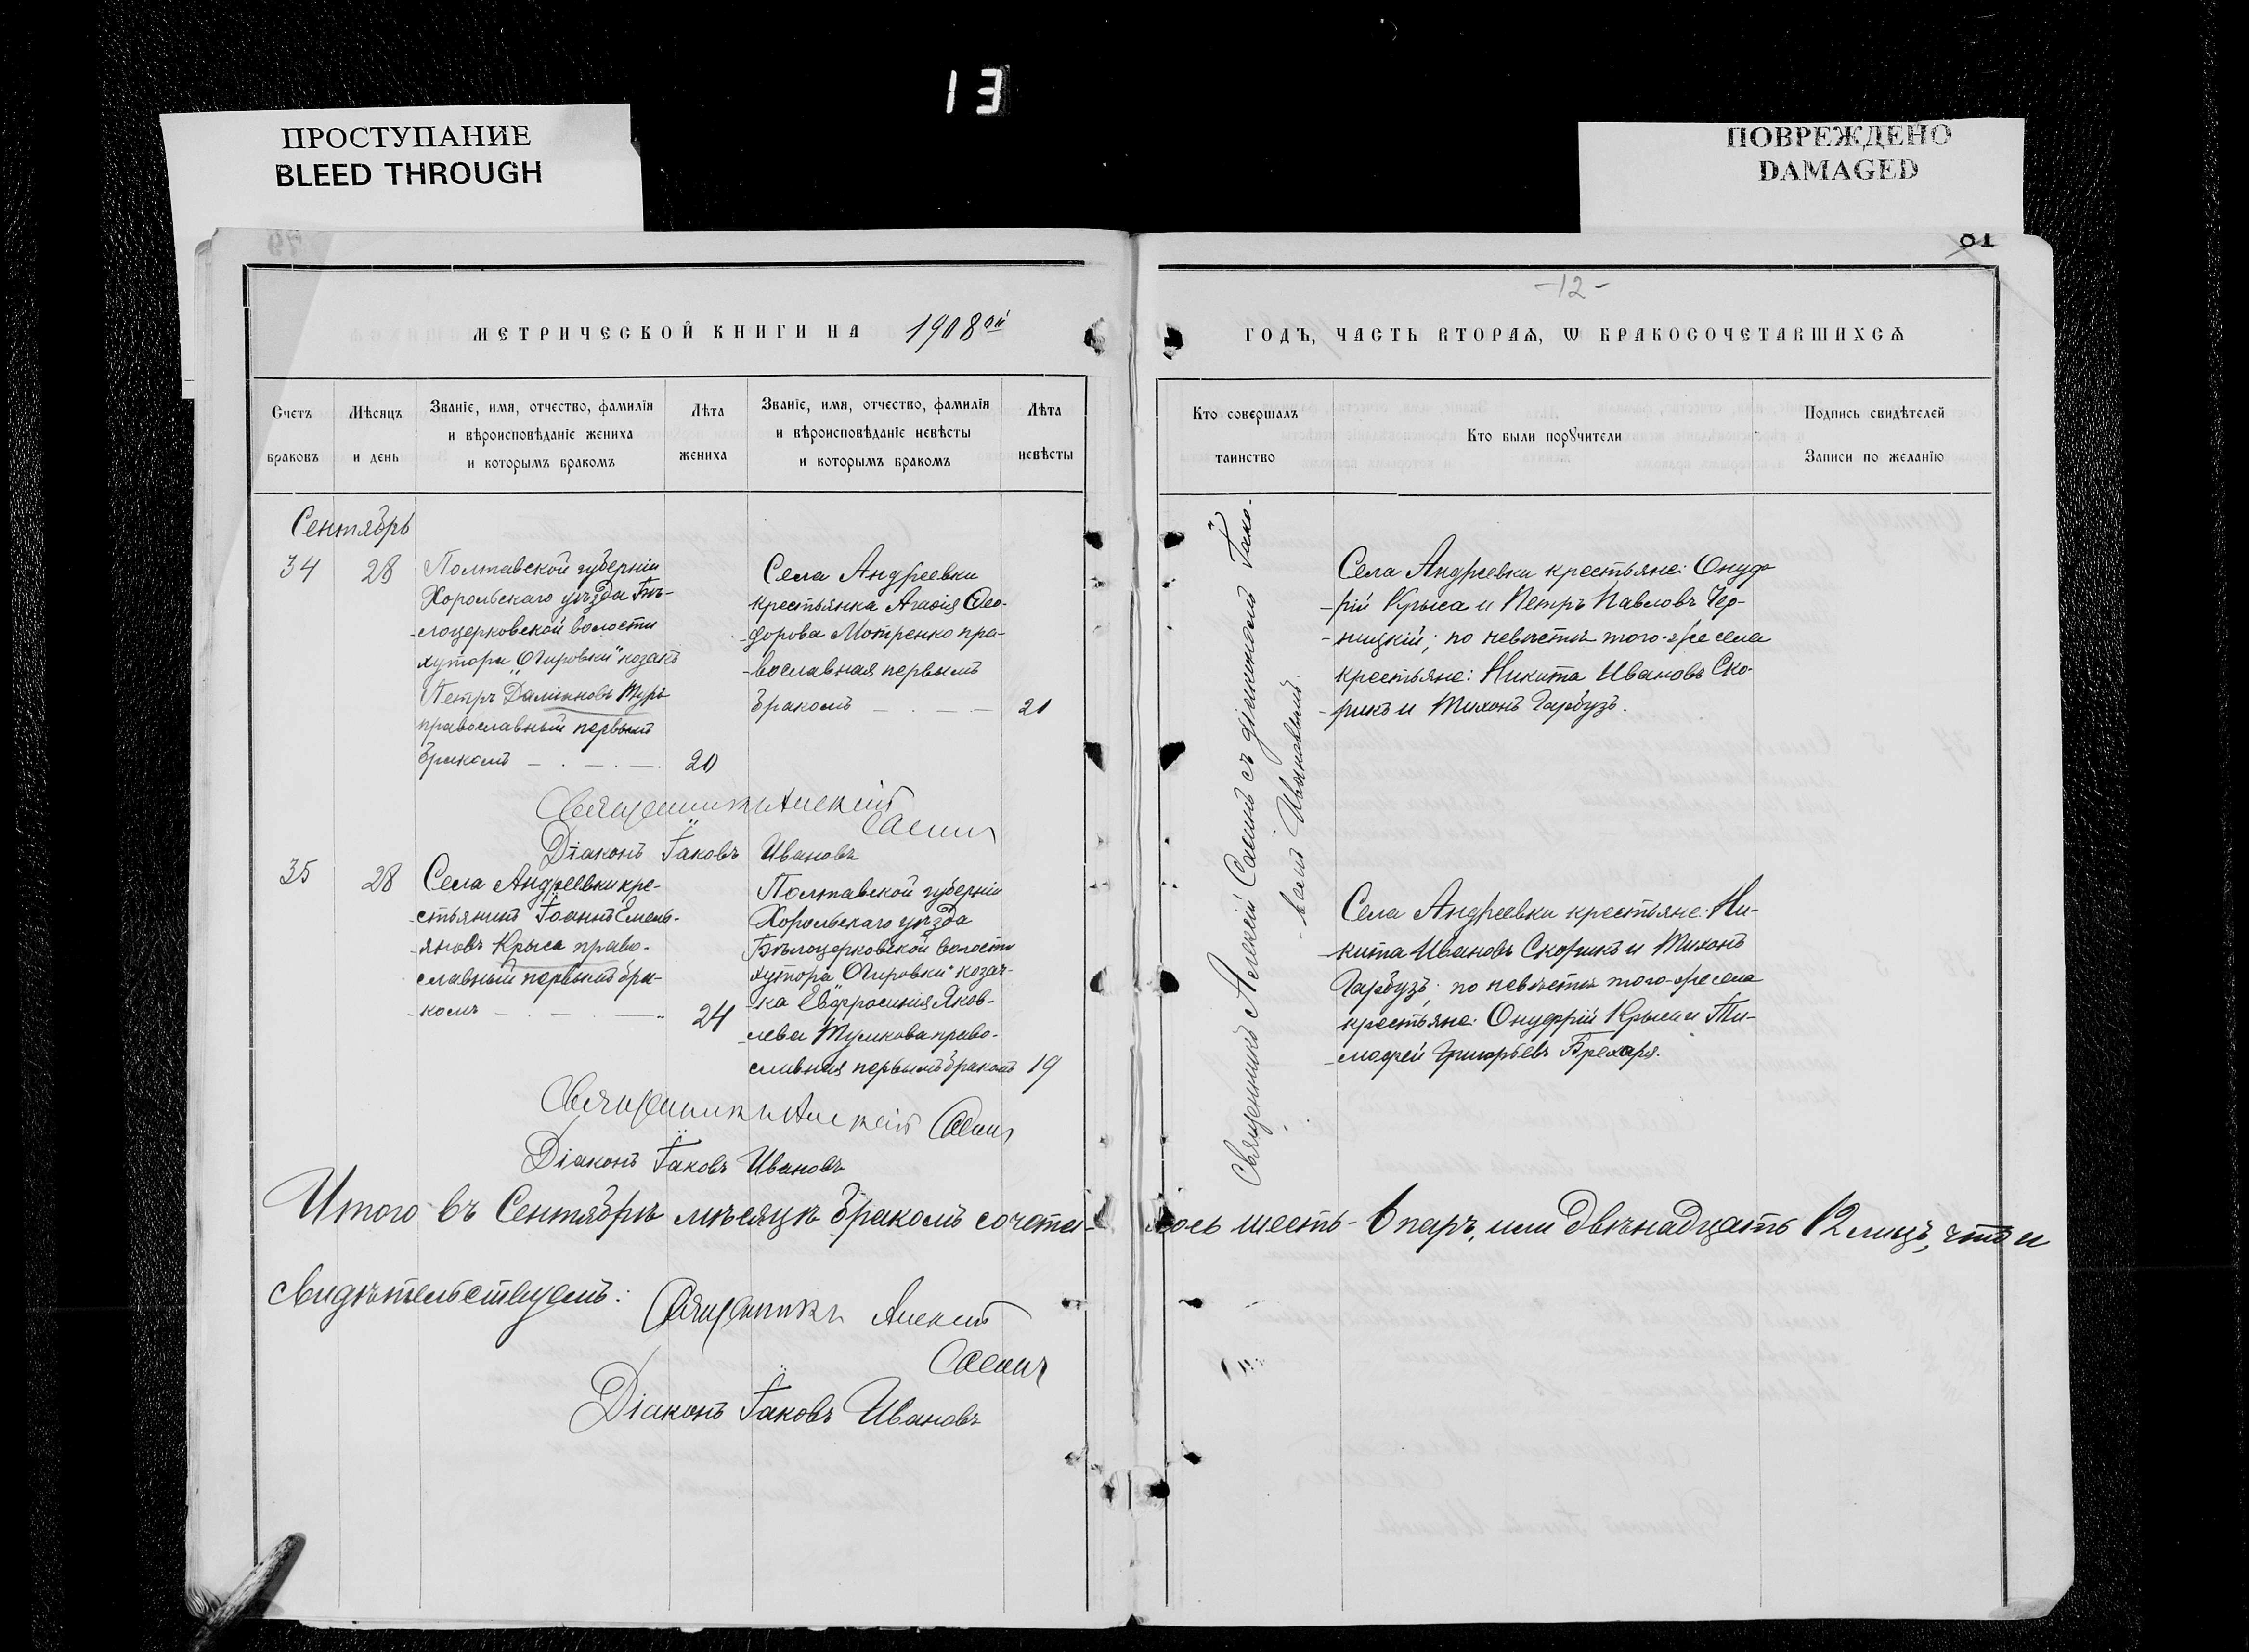 13
ПРОСТУПАНИЕ
BLEED THROUGH
ПОВРЕЖДЕНО
DAMAGED
81
-12-
МЕТРИЧЕСКОЙ КНИГИ НА 1908ой
ГОДЪ, ЧАСТЬ ВТОРАѦ, Ѡ БРАКОСОЧЕТАВШИХСѦ
Счетъ
браковъ
Мѣсяцъ
и день
Званіе, имя, отчество, фамилія
и вѣроисповѣданіе жениха
и которымъ бракомъ
Лѣта
жениха
Званіе, имя, отчество, фамилія
и вѣроисповѣданіе невѣсты
и которымъ бракомъ
Лѣта
невѣсты
Кто совершалъ
таинство
Кто были порꙋчители
Подпись свидѣтелей
Записи по желанію
Сентябрь
34
28
Полтавской губерніи
Хорольскаго уѣзда Бѣ-
-лоцерковской волости
хутора „Огировки" козакъ
Петръ Даміановъ Туръ
православный первымъ
бракомъ
20
Села Андреевки
крестьянка Агаѳія Ѳео-
-дорова Мотренко пра-
-вославная первымъ
бракомъ
21
Села Андреевки крестьяне: Онуф-
-рій Крыса и Петръ Павловъ Чер-
-ницкій; по невѣстѣ того-же села
крестьяне: Никита Ивановъ Ско-
-рикъ и Тихонъ Гарбузъ.
Священникъ Алексій Сасинъ
Діаконъ Іаковъ Ивановъ
35
28
Села Андреевки кре-
-стьянинъ Іоаннъ Емель-
-яновъ Крыса право-
-славный первымъ бра-
-комъ
24
Полтавской губерніи
Хорольскаго уѣзда
Бѣлоцерковской волости
хутора „Огировки" козач-
-ка Евфросинія Яков-
-лева Тумкова право-
-славная первымъ бракомъ
19
Села Андреевки крестьяне: Ни-
-кита Ивановъ Скорикъ и Тихонъ
Гарбузъ; по невѣстѣ того-же села
крестьяне: Онуфрій Крыса и Ти-
-мофей Григорьевъ Брехаря.
Священникъ Алексій Сасинъ
Діаконъ Іаковъ Ивановъ
Священникъ Алексій Сасинъ съ діакономъ Іако-
-вомъ Ивановымъ.
Итого въ Сентябрѣ мѣсяцѣ бракомъ сочета-лось шесть - 6 паръ, или двѣнадцать 12 лицъ, что и
свидѣтельствуемъ:
Священникъ Алексій
Сасинъ
Діаконъ Іаковъ Ивановъ